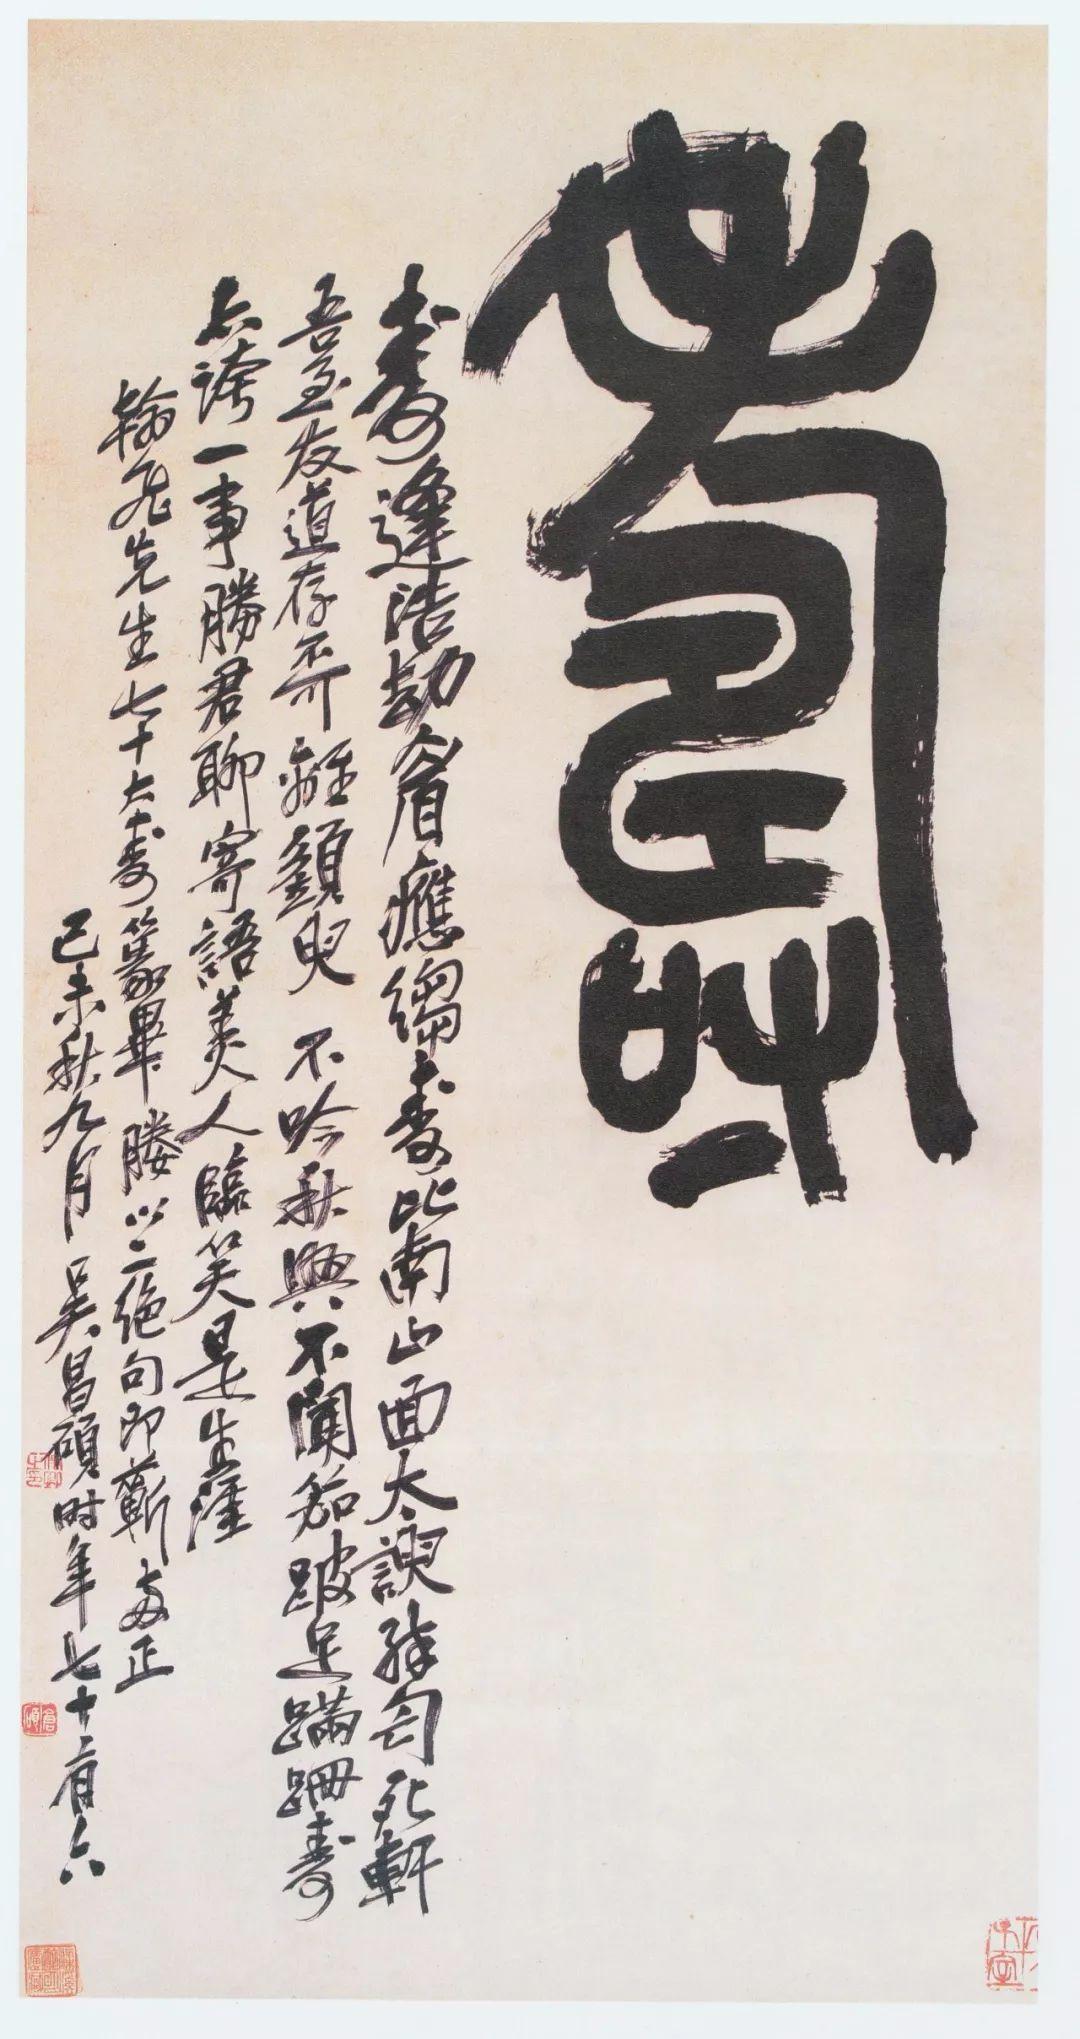 壽
壽逢浩劫眉應縐壽比南山面太諛死軒
吾至友道存不可離須臾 不吟秋興不聞笳跛足蹣跚壽
亦誇一事勝君聊寄語美人臨笑是生涯
翰飛先生七十大壽篆畢媵以二絕句即蘄正
己未秋九月吳昌碩時年七十有六